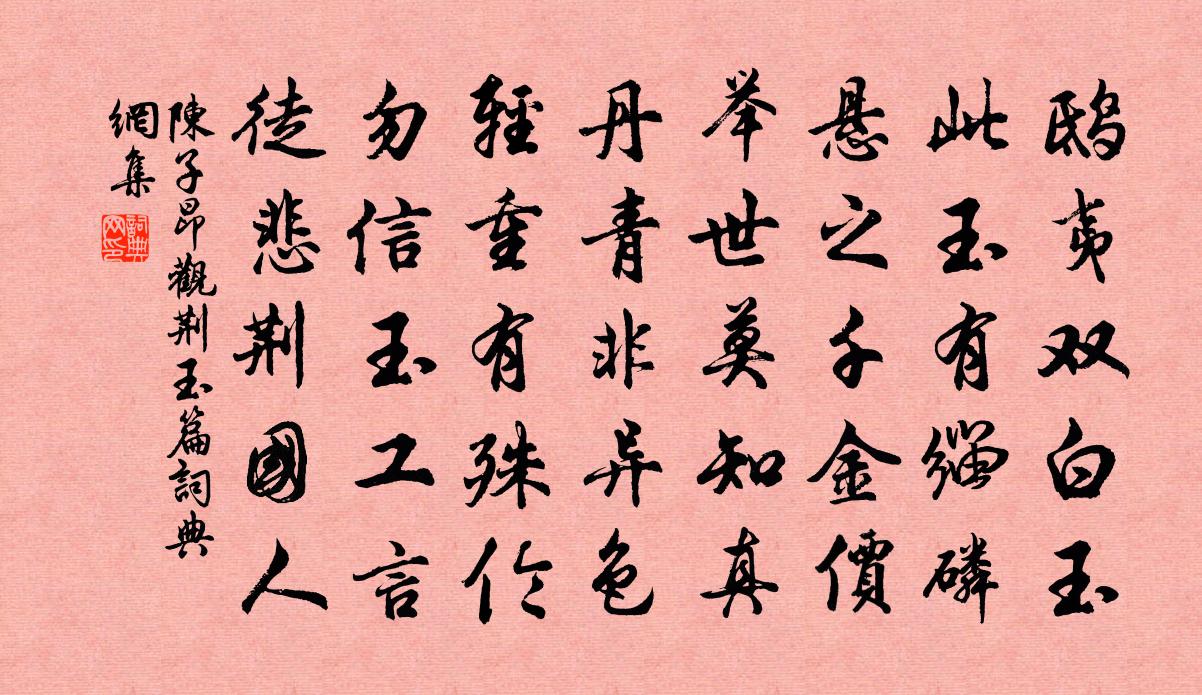 鸱夷双白玉
此玉有缁磷
悬之千金價
举世莫知真
丹青非异色
輕重有殊伦
勿信玉工言
徒悲荆國人
陳子昂觀荆玉篇詞典
網集
詞典網印